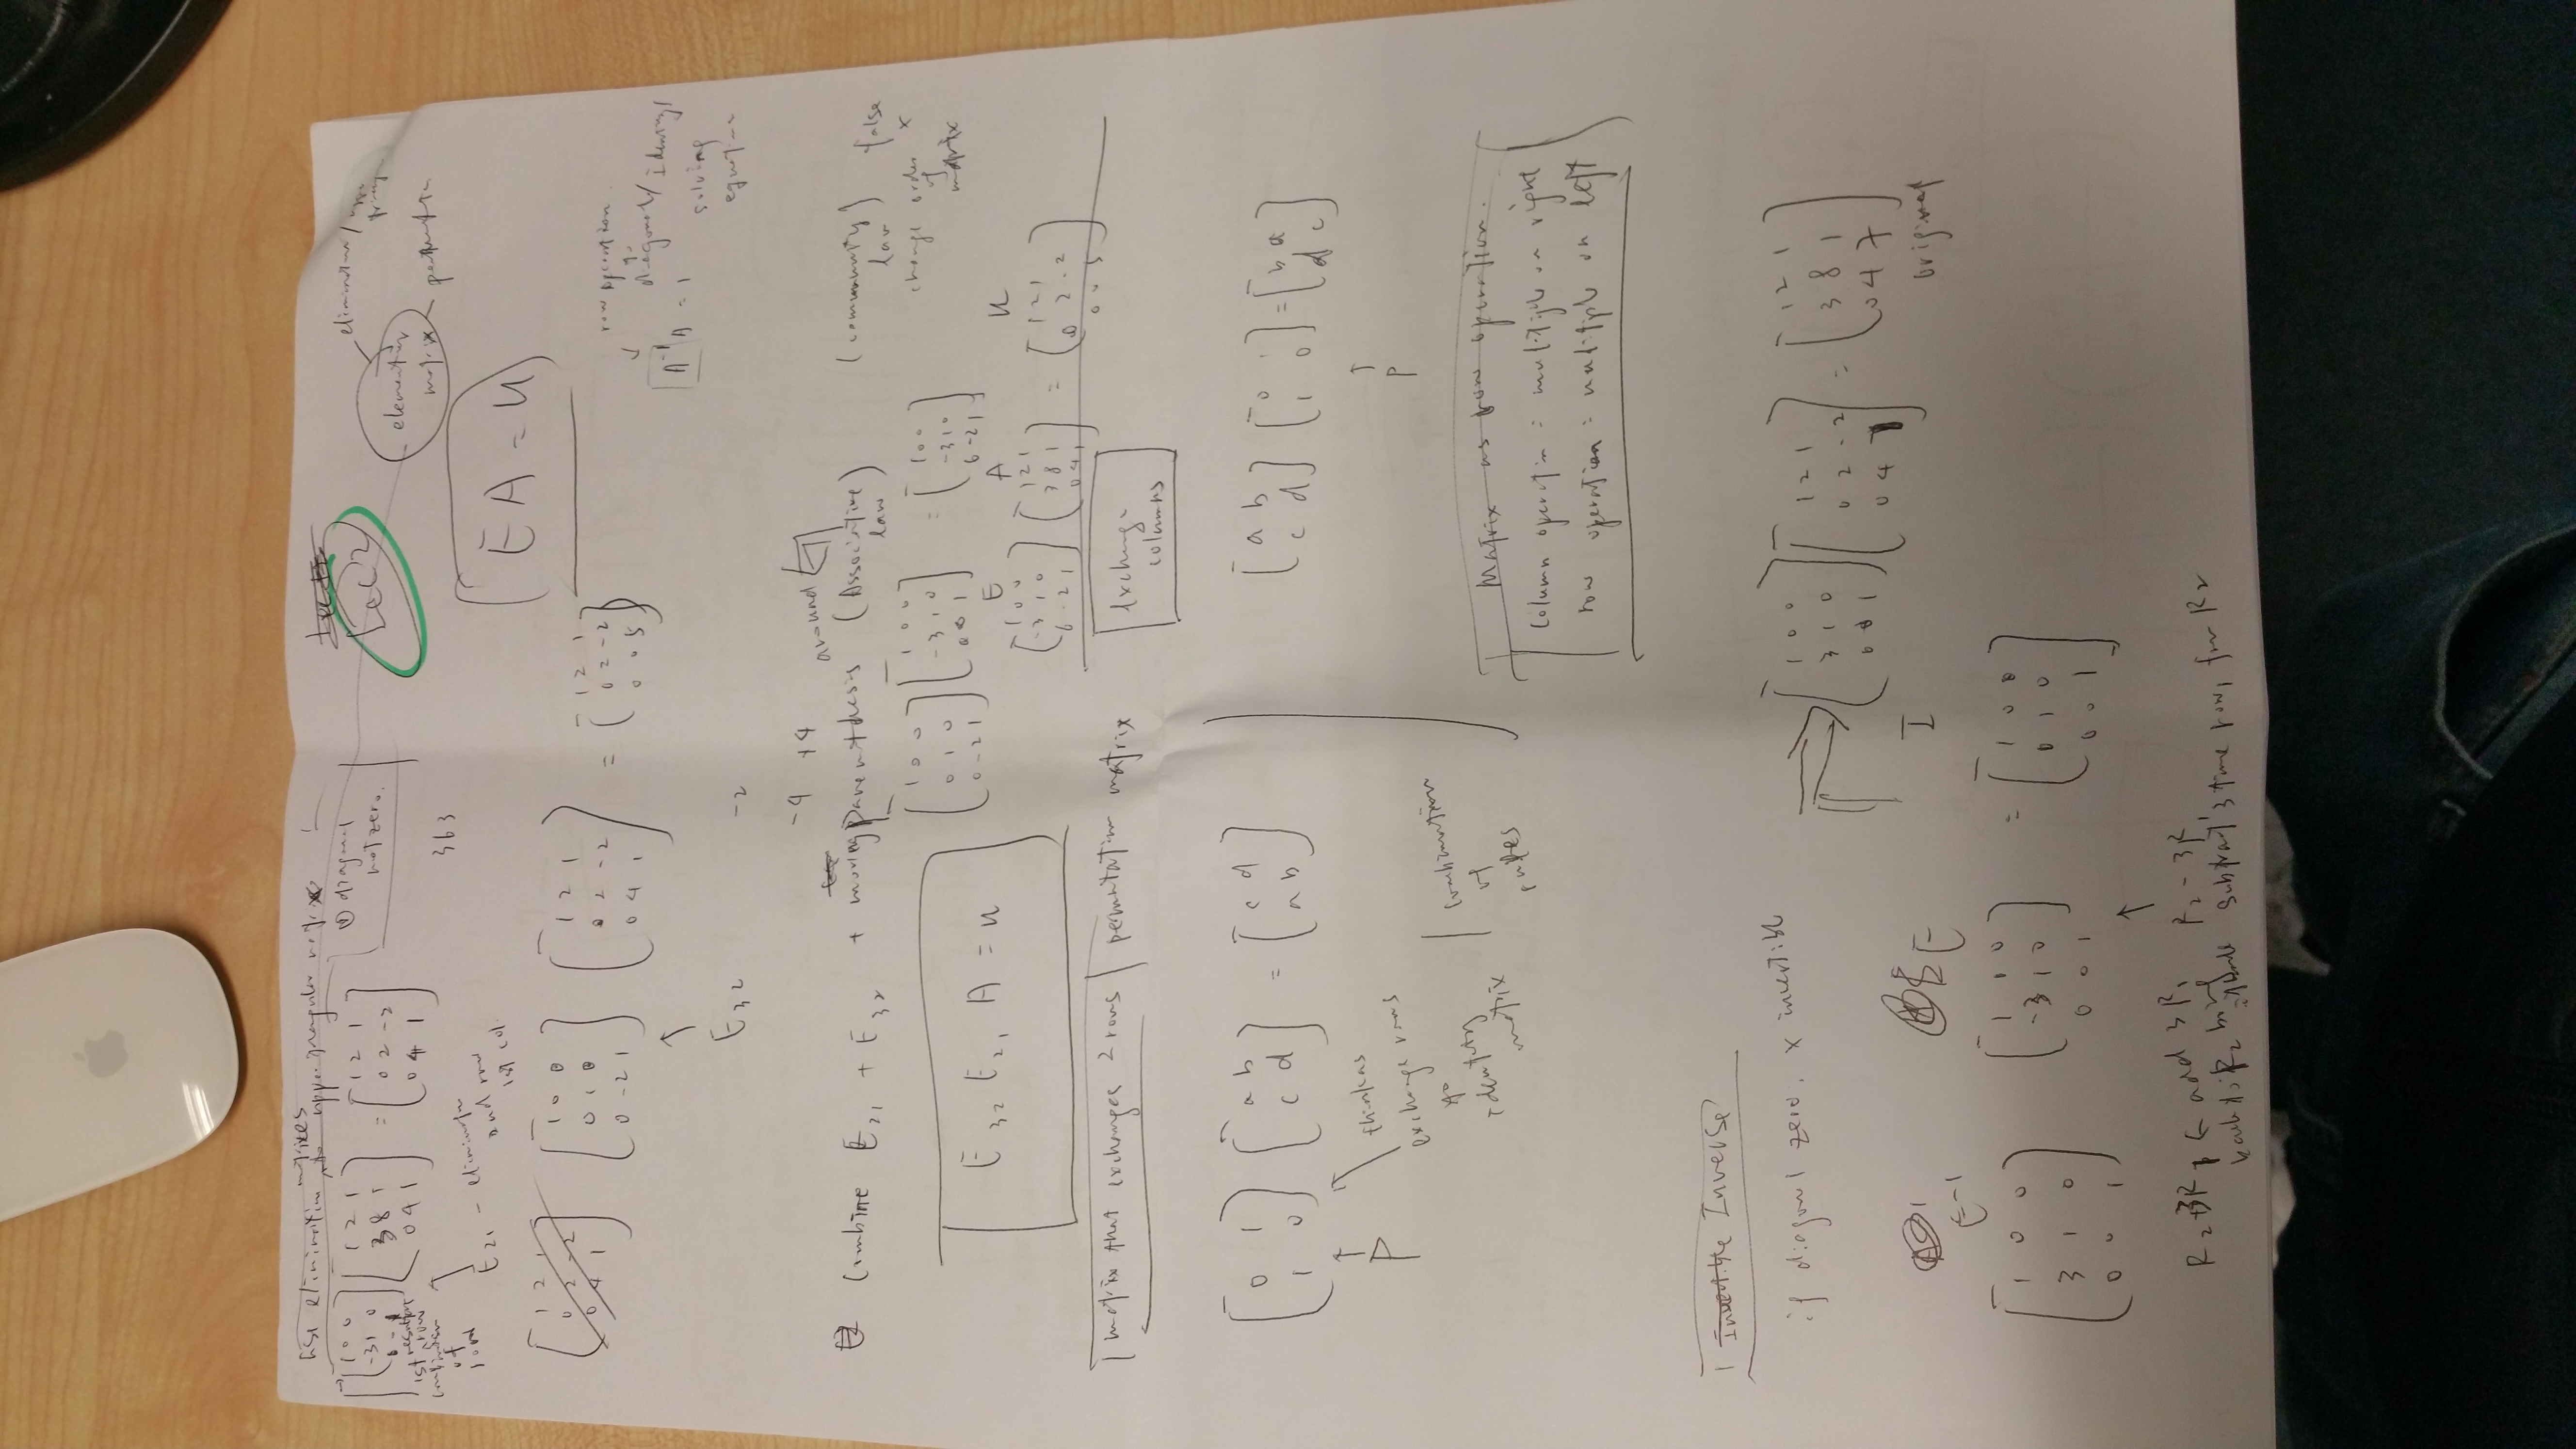 elimination matrixes upper triangular matrix
[1 0 0
-3 1 0
[1 2 1
3 8 1
0 4 1]
=
[1 2 1
0 2 -2
0 4 1]
① diagonal
not zero.
1st resultant row
combination
of
E21 - elimination
2nd row
1st col
363
Lec 2
elementary
matrix
elimination /
EA = U
[1 2 1
0 2 -2
0 4 1]
[1 0 0
0 1 0
0 -2 1]
[1 2 1
0 2 -2
0 4 1]
=
[1 2 1
0 2 -2
0 0 5]
E32
row operation
to
diagonal / Identity /
A⁻¹ A = 1
solving
-2
-4 +4
Combine E21 + E32 + moving parenthesis around (Associative
law)
(community
law)
false
x
change order
of
matrix
[1 0 0
0 1 0
0 -2 1]
[1 0 0
-3 1 0
0 0 1]
=
[1 0 0
-3 1 0
6 -2 1]
E32 E21 A = U
E A U
[1 0 0
-3 1 0
6 -2 1]
[1 2 1
3 8 1
0 4 1]
=
[1 2 1
0 2 -2
0 0 5]
matrix that exchanges 2 rows | permutation matrix
exchange
columns
[0 1
1 0]
[a b
c d]
=
[c d
a b]
P
think as
exchange rows
to
identity
matrix
combination
of
[a b
c d]
[0 1
1 0]
=
[b a
d c]
P
Matrix as row operation.
column operation = multiple on right
row operation = multiple on left
Inverse
if diagonal zero. x invertible
[1 0 0
3 1 0
0 0 1]
[1 2 1
0 2 -2
0 4 1]
=
[1 2 1
3 8 1
0 4 7]
original
E⁻¹ E I
[1 0 0
3 1 0
0 0 1]
[1 0 0
-3 1 0
0 0 1]
=
[1 0 0
0 1 0
0 0 1]
R2+3R1 ← add 3R1
back to R2
R2 - 3R1
subtract 3 time row1 for R2